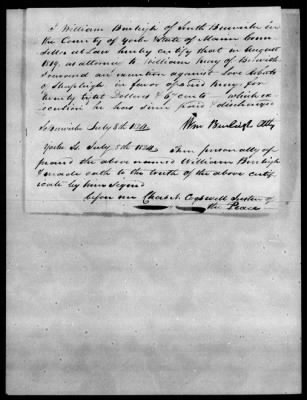 I William Burleigh of South Berwick in
the County of York & State of Maine Coun
sellor at Law hereby certify that in August
1819, as attorney to William King of Berwick
I renewed an execution against Love Roberts
of Shapleigh in favor of said King for
twenty eight Dollars & 67 cents which ex
ecution he has since paid & discharged
So Berwick July 8th 1820 Wm Burleigh Atty
York Ss. July 8th 1820 Then personally ap
peared the above named William Burleigh
& made oath to the truth of the above certif
icate by him signed
before me Chas N. Cogswell Justice of
the Peace